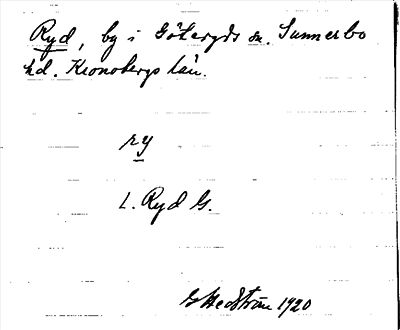 Ryd, by i Göteryds sn. Sunnerbo
hd. Kronobergs län.
ry
L. Ryd G.
G Hedström 1920